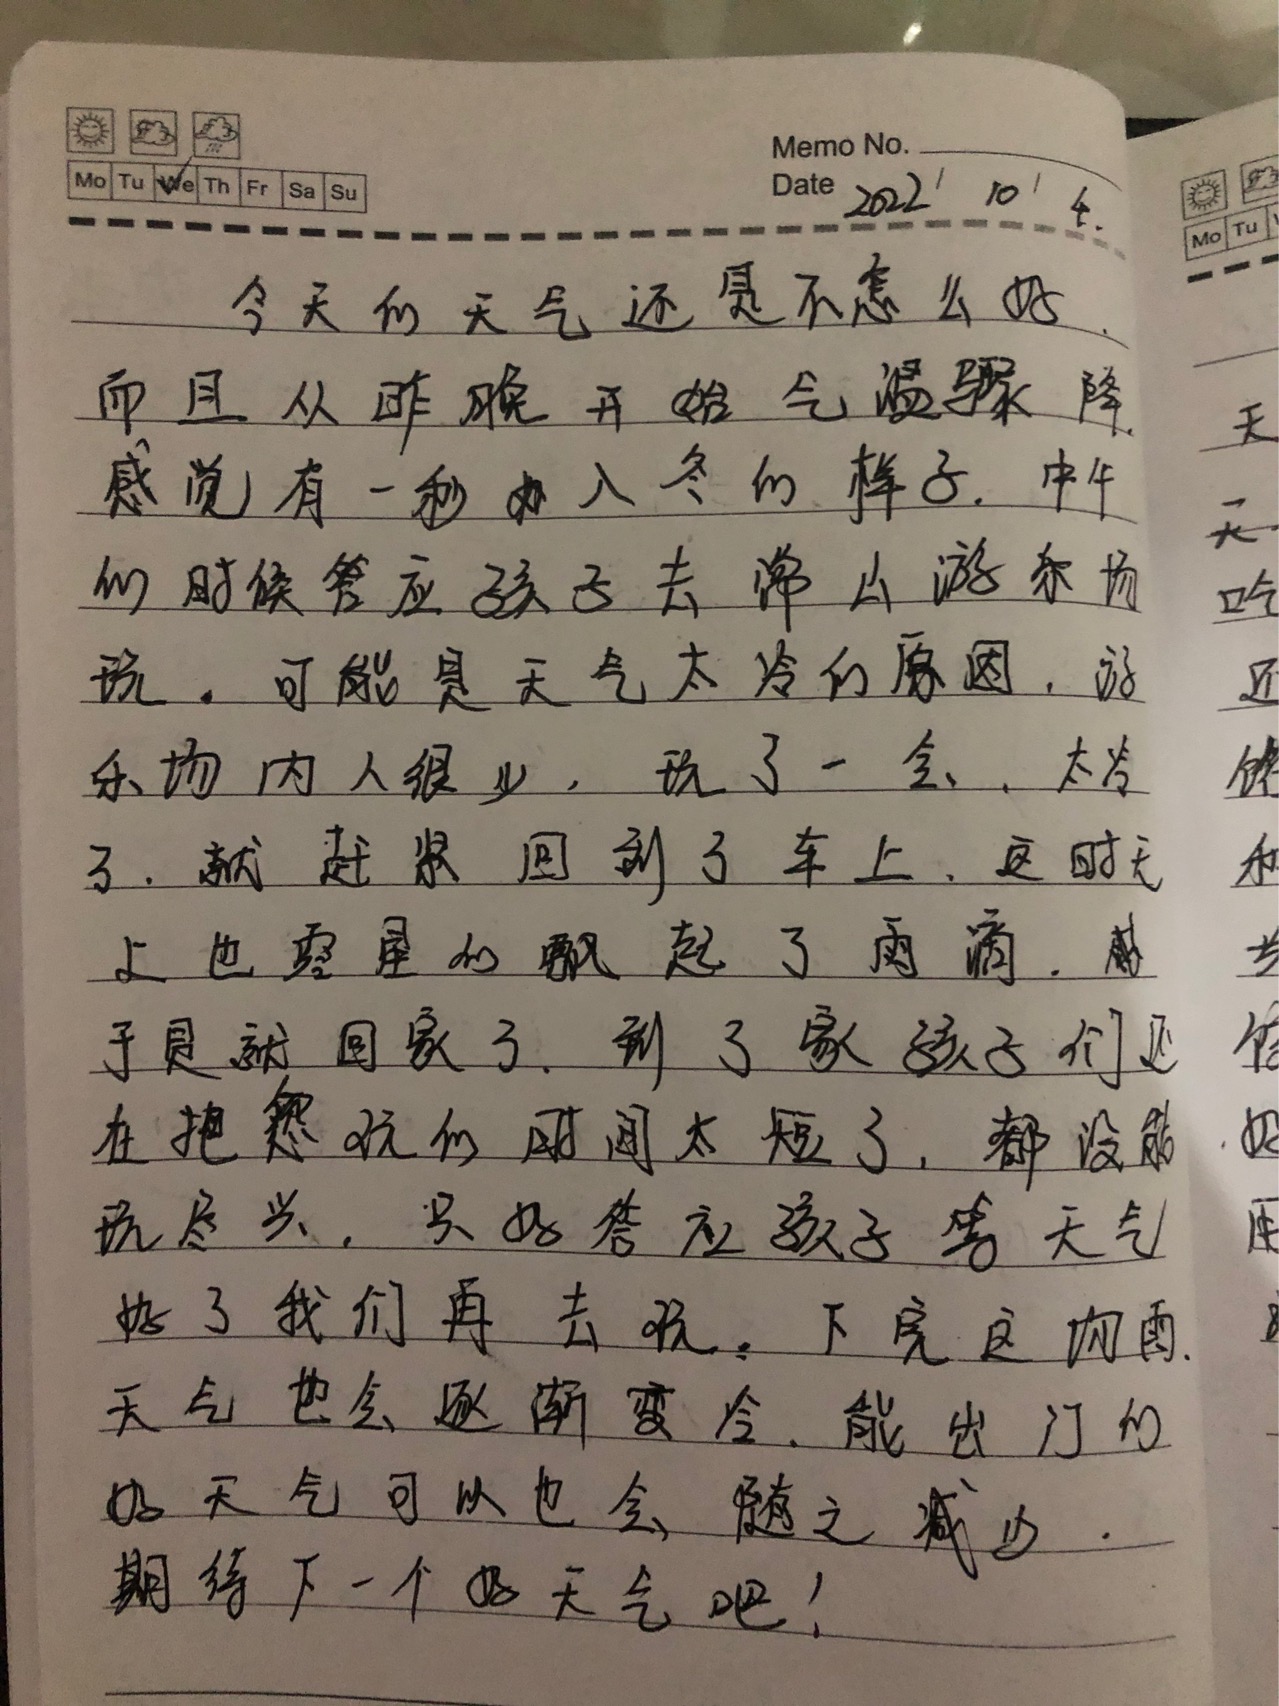 Memo No.
Mo Tu We Th Fr Sa Su
Date 2022/10/4.
今天的天气还是不怎么好.
而且从昨晚开始气温骤降.
感觉有一秒入冬的样子.中午
的时候答应孩子去常山游乐场
玩。可能是天气太冷的原因.游
乐场内人很少,玩了一会、太冷
了.就赶紧回到了车上.这时天
上也零星的飘起了雨滴.
于是就回家了.到了家孩子们还
在抱怨玩的时间太短了,都没能
玩尽兴.只好答应孩子等天气
好了我们再去玩。下完这场雨.
天气也会逐渐变冷.能出门的
好天气可以也会随之减少.
期待下一个好天气吧!
Mo Tu
天
天
吃
还
和
好
用